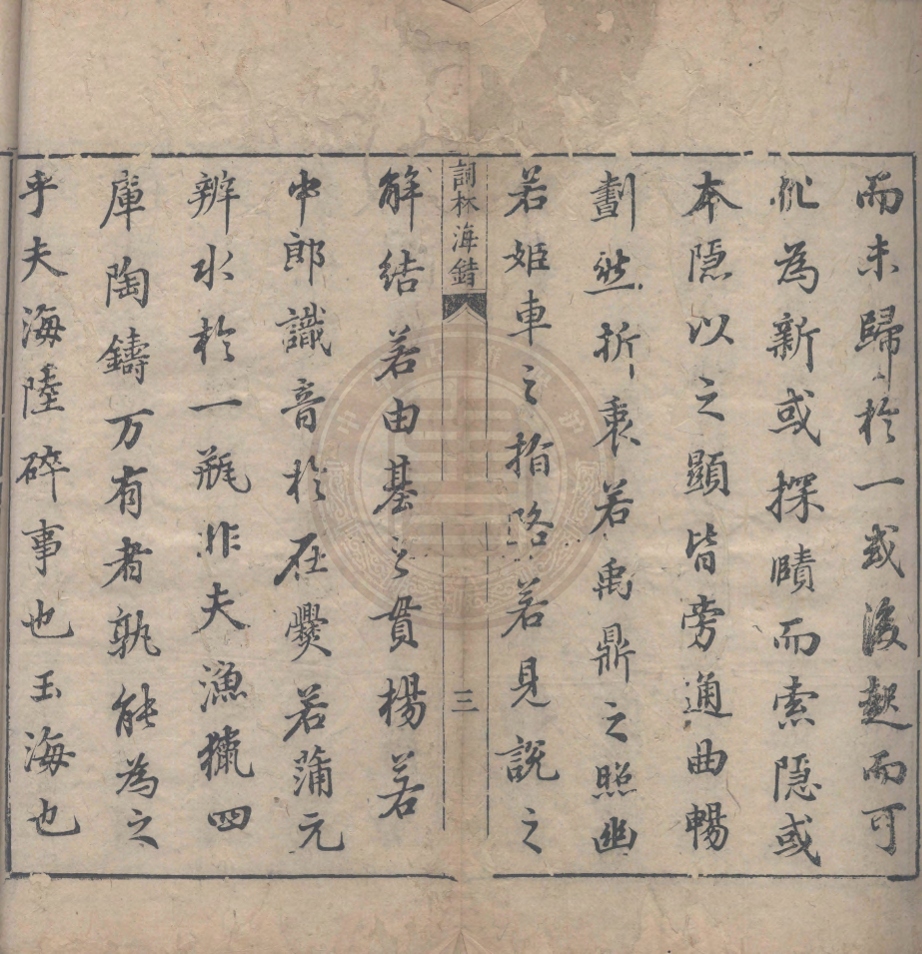 而未歸於一或後起而可
化為新或探賾而索隱或
本隱以之顯皆旁通曲暢
劃然折衷若禹鼎之照幽
若姬車之指路若見說之
詞林海錯
三
解結若由基之貫楊若
中郎識音於在爨若蒲元
辨水於一瓶非夫漁獵四
庫陶鑄万有者孰能為之
乎夫海陸碎事也玉海也